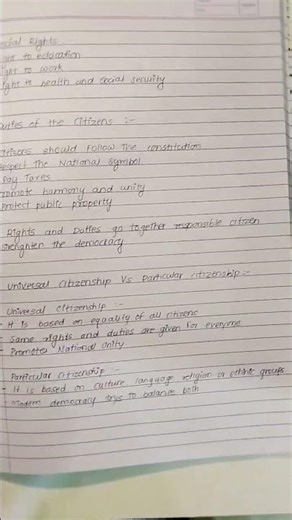 Social Rights :-
Right to education
Right to work
Right to health and social security
Duties of the Citizens :-
Citizens should Follow The constitution
Respect The National Symbol
Pay Taxes
Promote harmony and unity
Protect public property
Rights and Duties go together responsible citizen
strenghten the democracy
Universal Citizenship Vs Particular citizenship :-
Universal citizenship :-
- It is based on equality of all citizens
- Same rights and duties are given for everyone
- Promotes National Unity
Particular citizenship :-
- It is based on culture language religion or ethnic groups
- Modern democracy trys to balance both